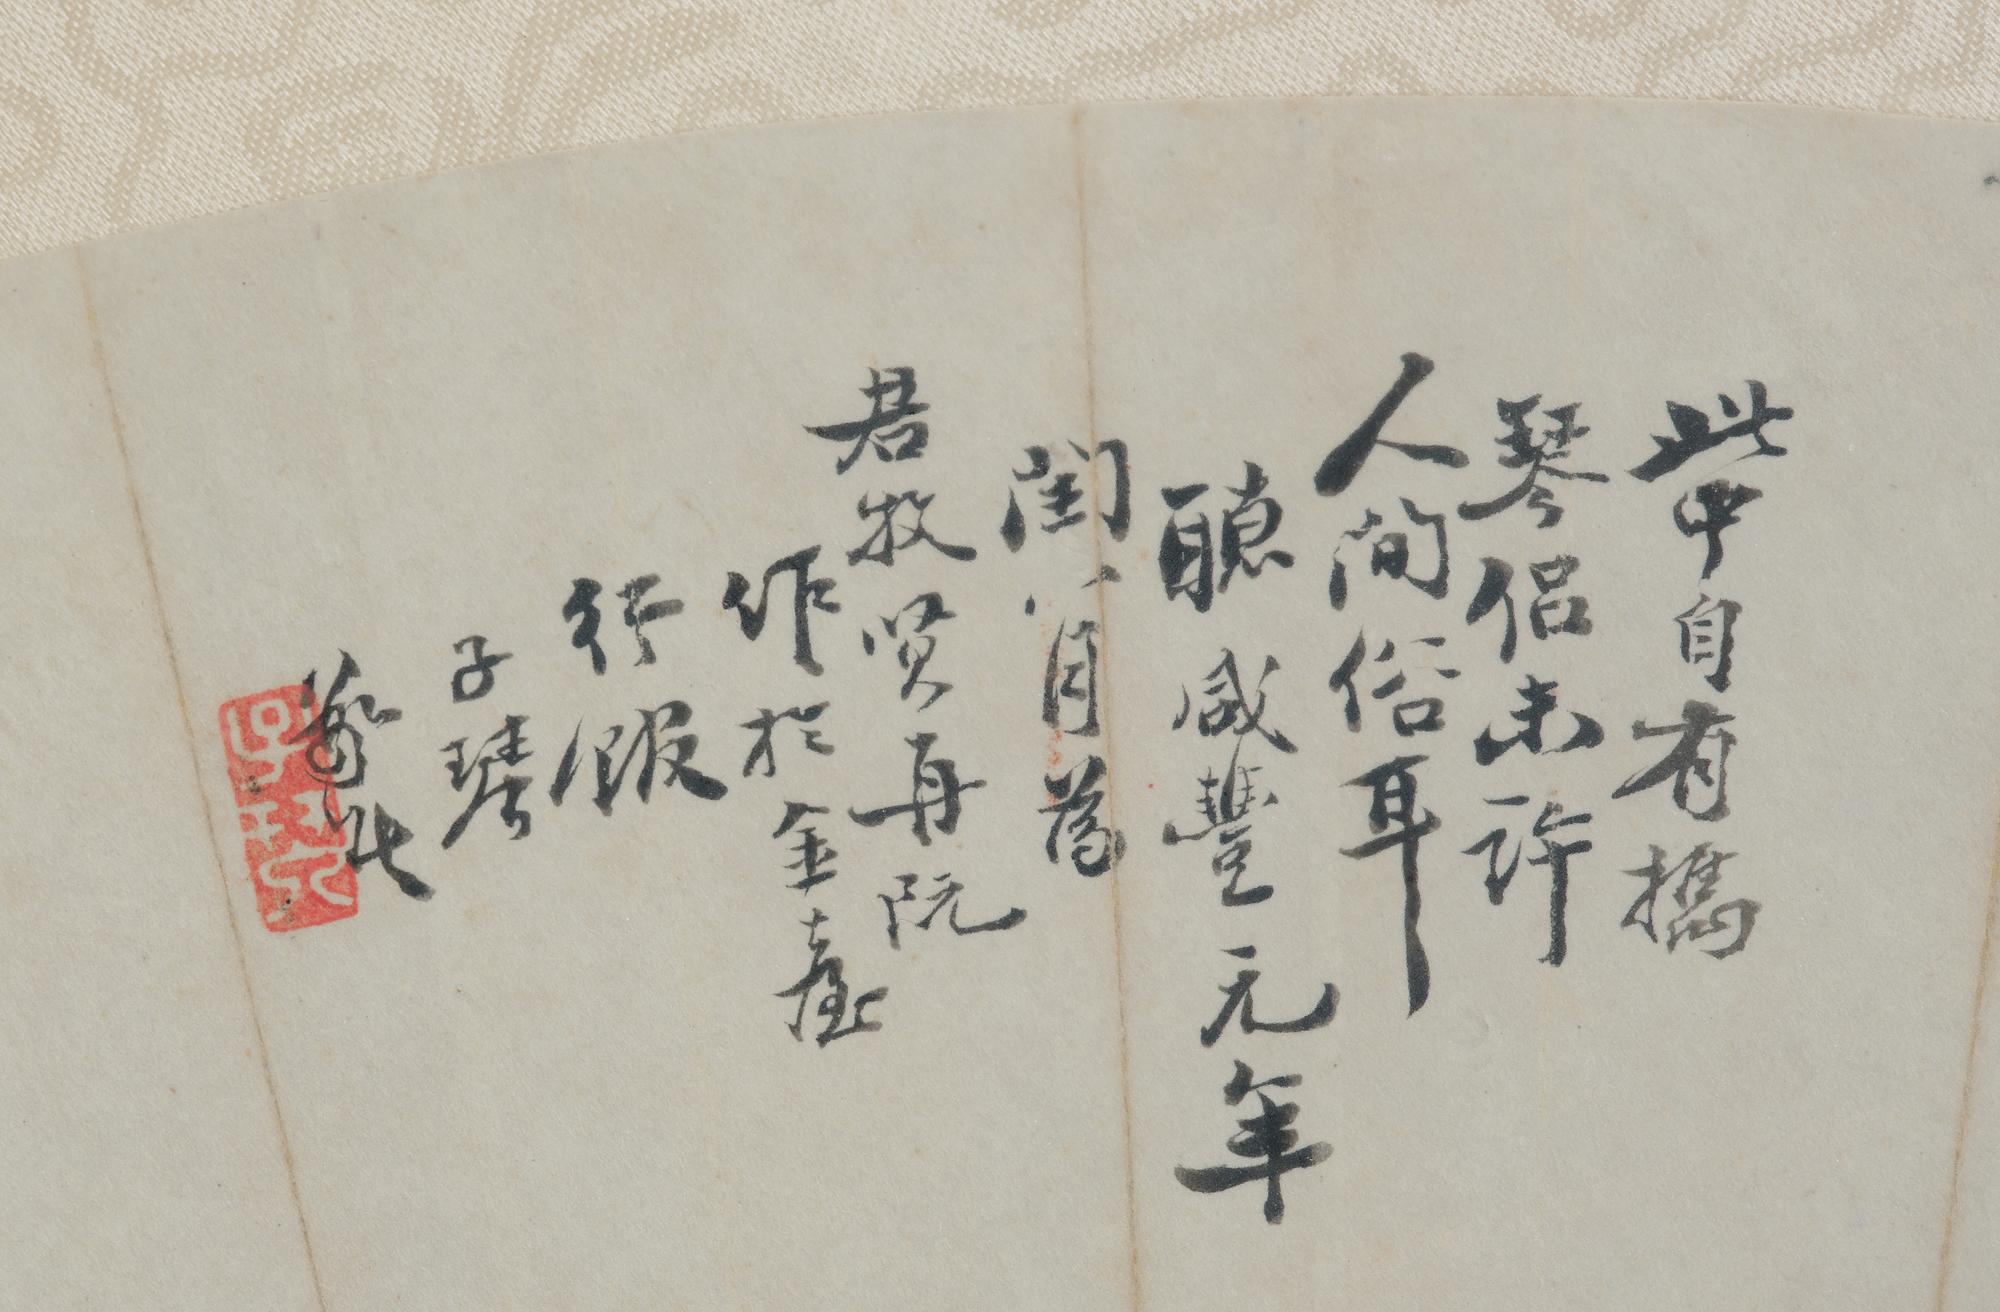 此中自有攜
琴侶未許
人間俗耳
聽咸豐元年
閏八月為
君牧賢再阮
作於金臺
行馭
子琴
戴熙